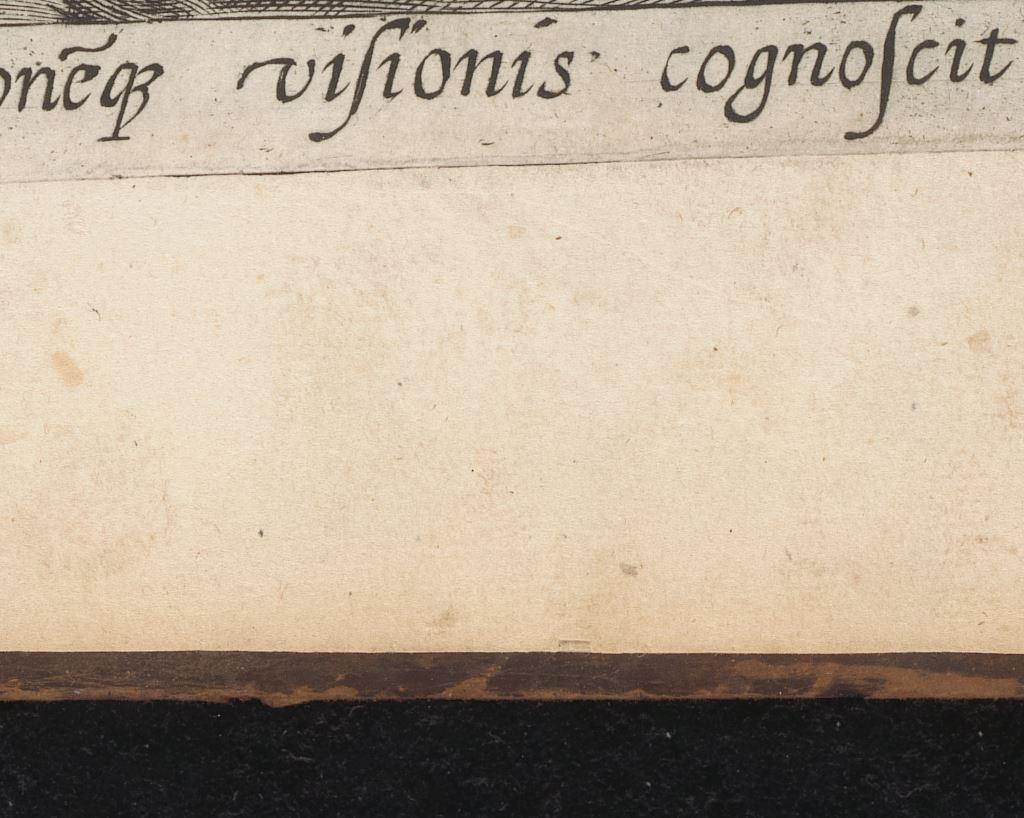 onẽqꝫ viſionis cognoſcit